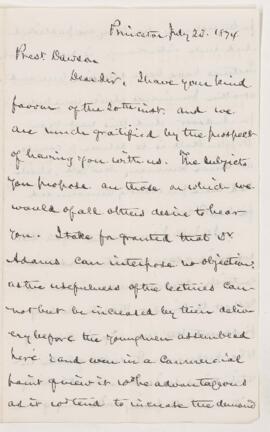 Princeton July 22. 1874
Prest Dawson
Dear Sir, I have your kind
favour of the 20th inst. and we
are much gratified by the prospect
of having you with us. The subjects
you propose are those on which we
would of all others desire to hear
you. I take for granted that Dr
Adams can interpose no objection:
as the usefulness of the lectures can-
not but be increased by their deliv-
ery before the young men assembled
here & and even in a commercial
point of view it wd be advantageous
as it wd tend to increase the demand